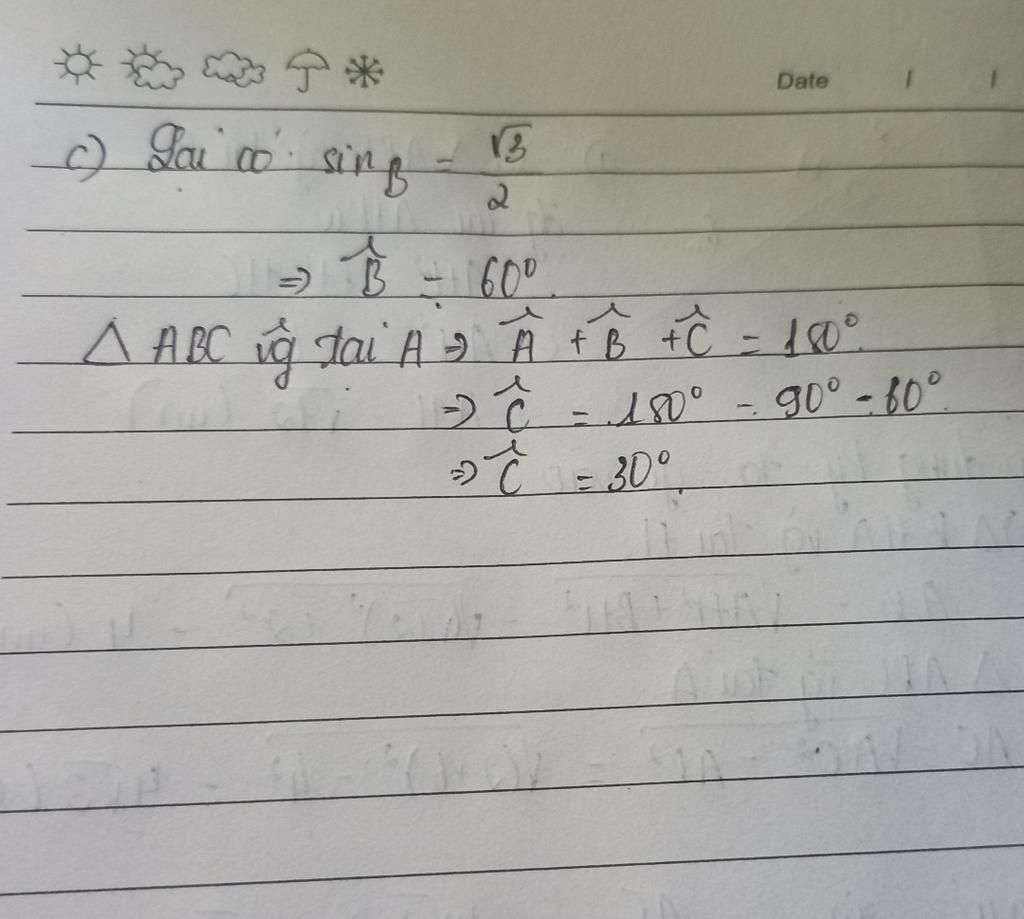 Date / /
c) Lại có: sin B = √3/2
=> B̂ = 60°.
△ ABC vg tại A => Â + B̂ + Ĉ = 180°.
=> Ĉ = 180° - 90° - 60°.
=> Ĉ = 30°.